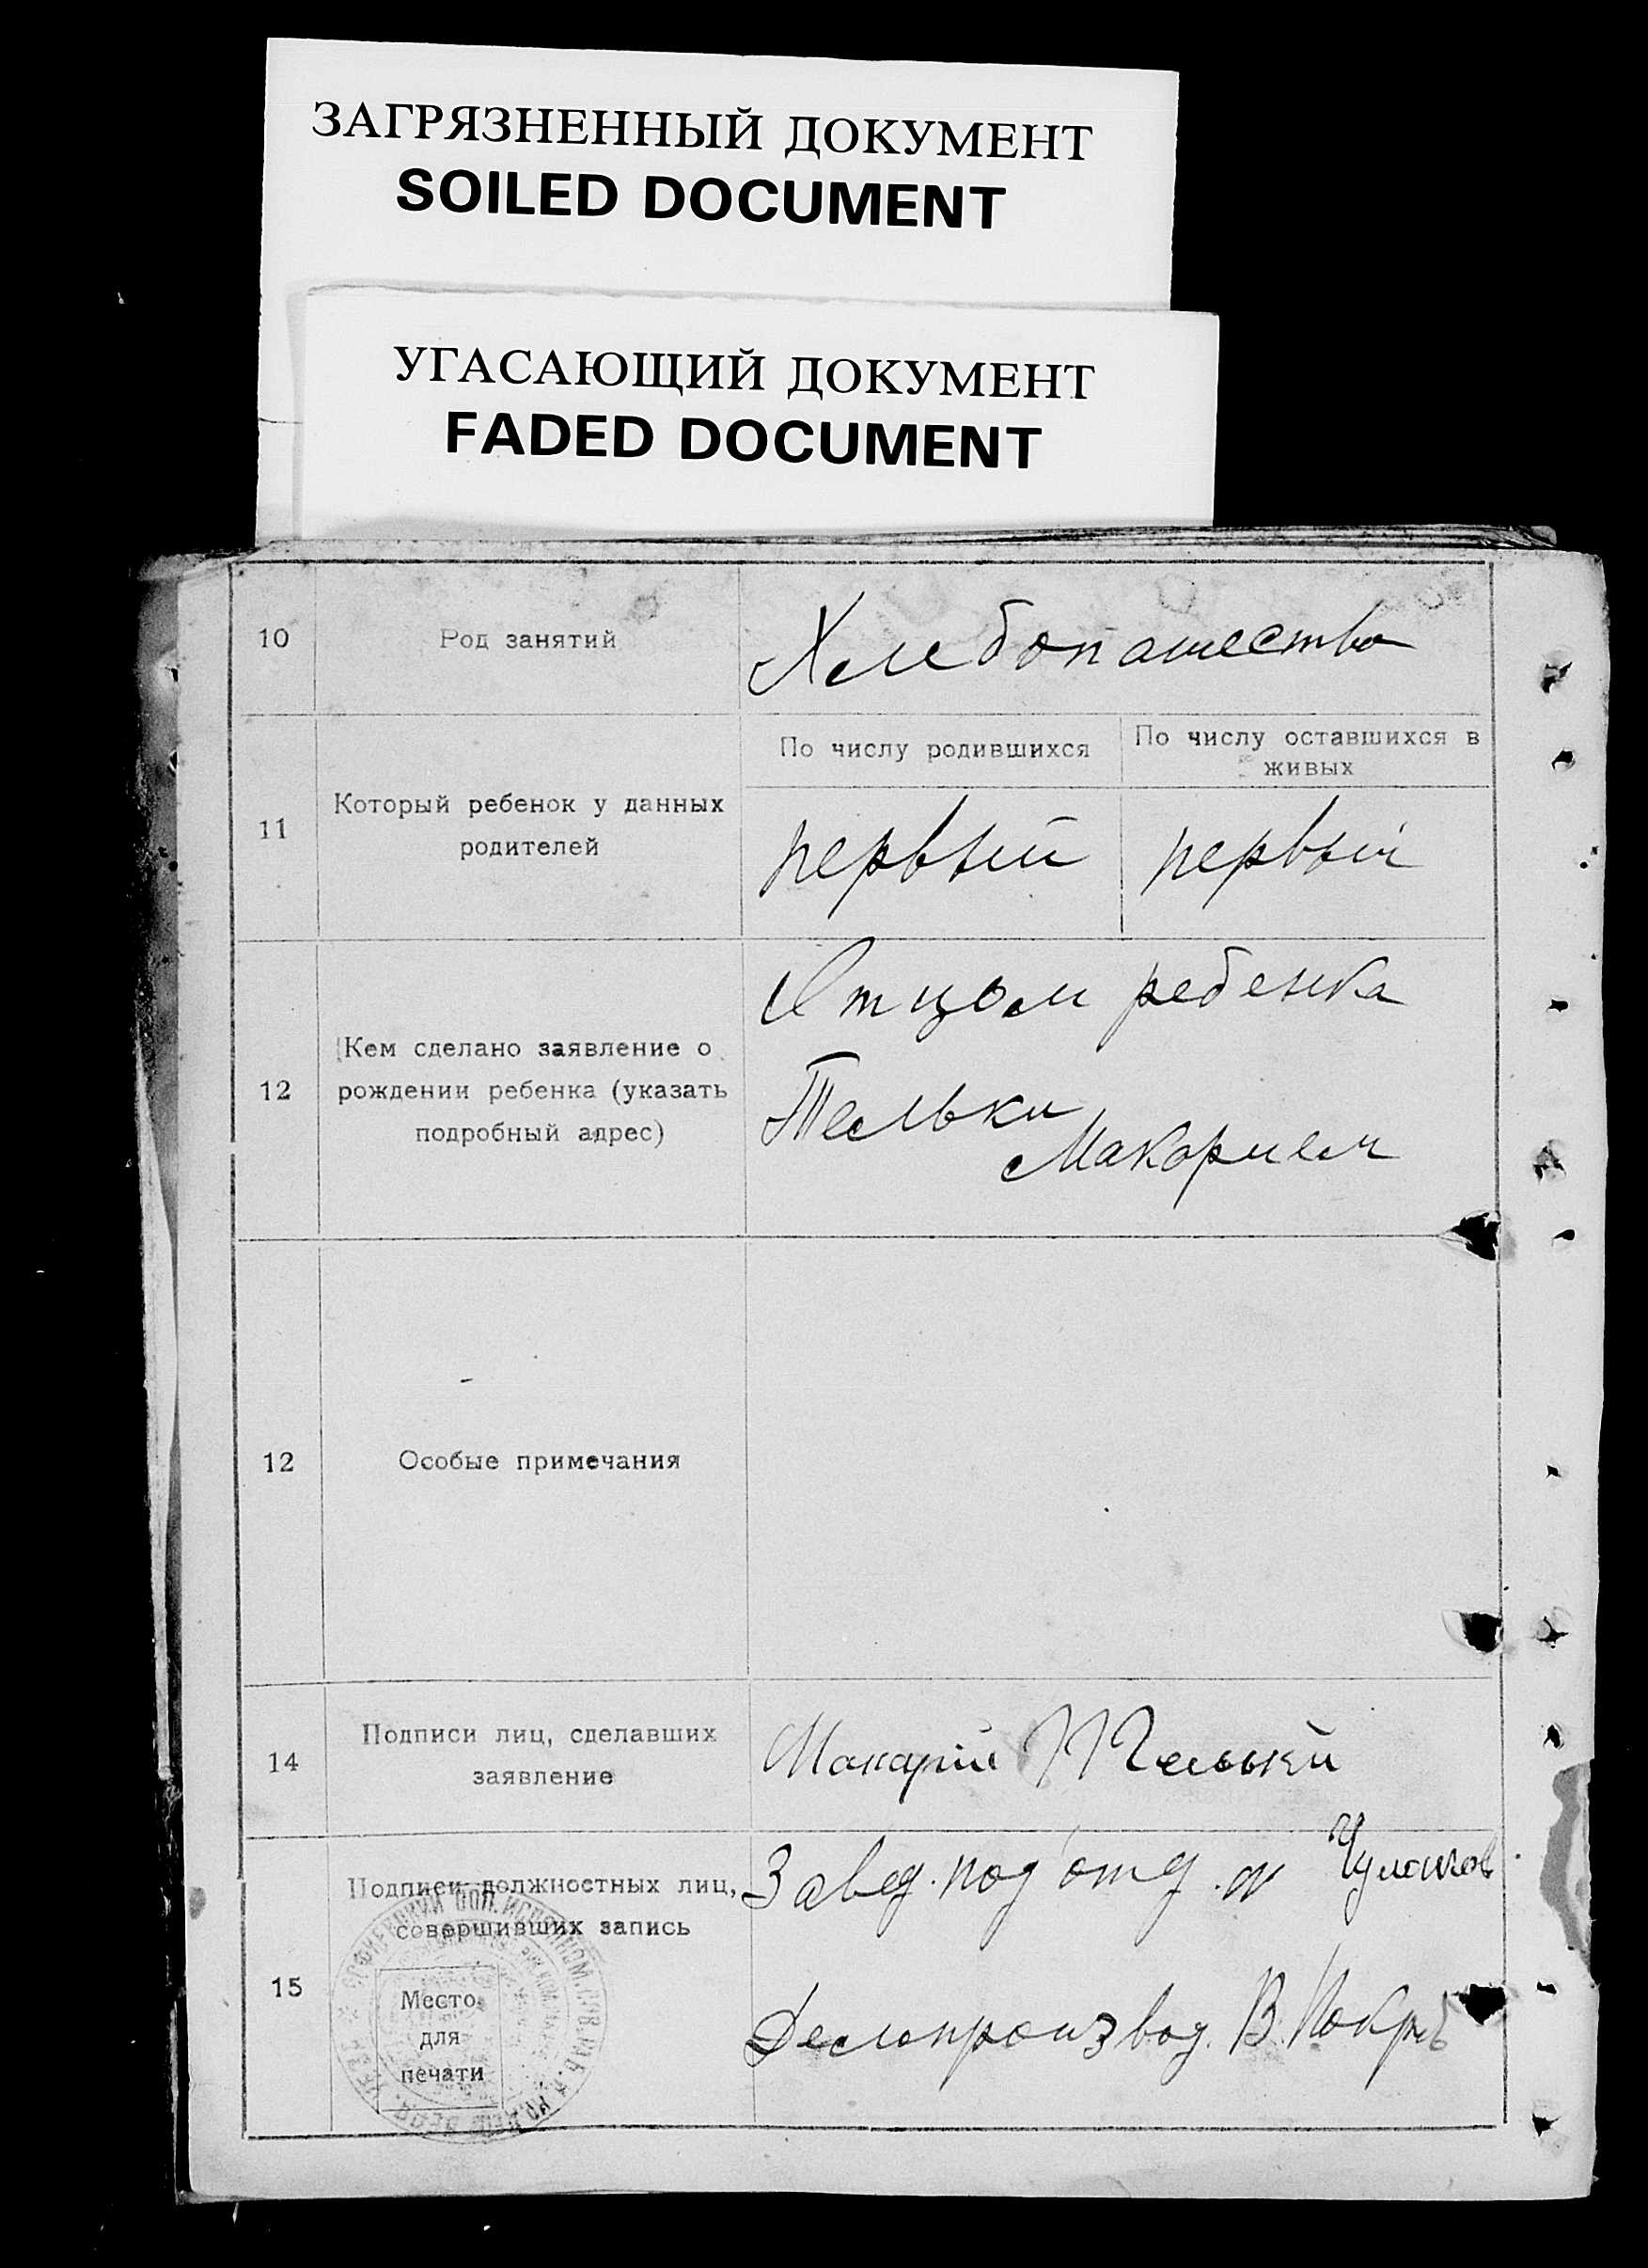 ЗАГРЯЗНЕННЫЙ ДОКУМЕНТ
SOILED DOCUMENT
УГАСАЮЩИЙ ДОКУМЕНТ
FADED DOCUMENT
10 Род занятий Хлебопашество
11 Который ребенок у данных родителей
По числу родившихся
По числу оставшихся в живых
первый первый
12 Кем сделано заявление о
рождении ребенка (указать
подробный адрес)
Отцом ребенка
Тельки
Макорием
12 Особые примечания
14 Подписи лиц, сделавших
заявление
Макарий
15 Подписи должностных лиц,
совершивших запись
Место
для
печати
Завед. подотд.
Делопроизвод. В.